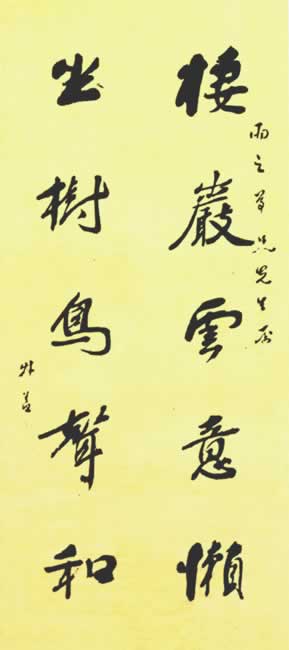 棲巖雲意懶
雨之尊兄先生屬
坐樹鳥聲和